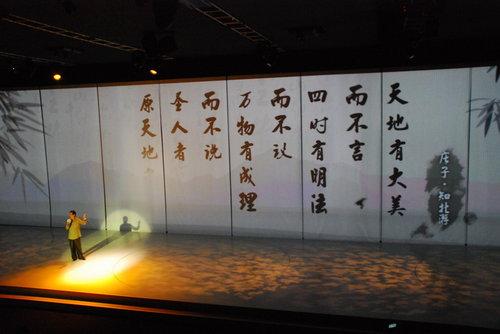 天地有大美
而不言
四时有明法
而不议
万物有成理
而不说
圣人者
原天地
庄子·知北游